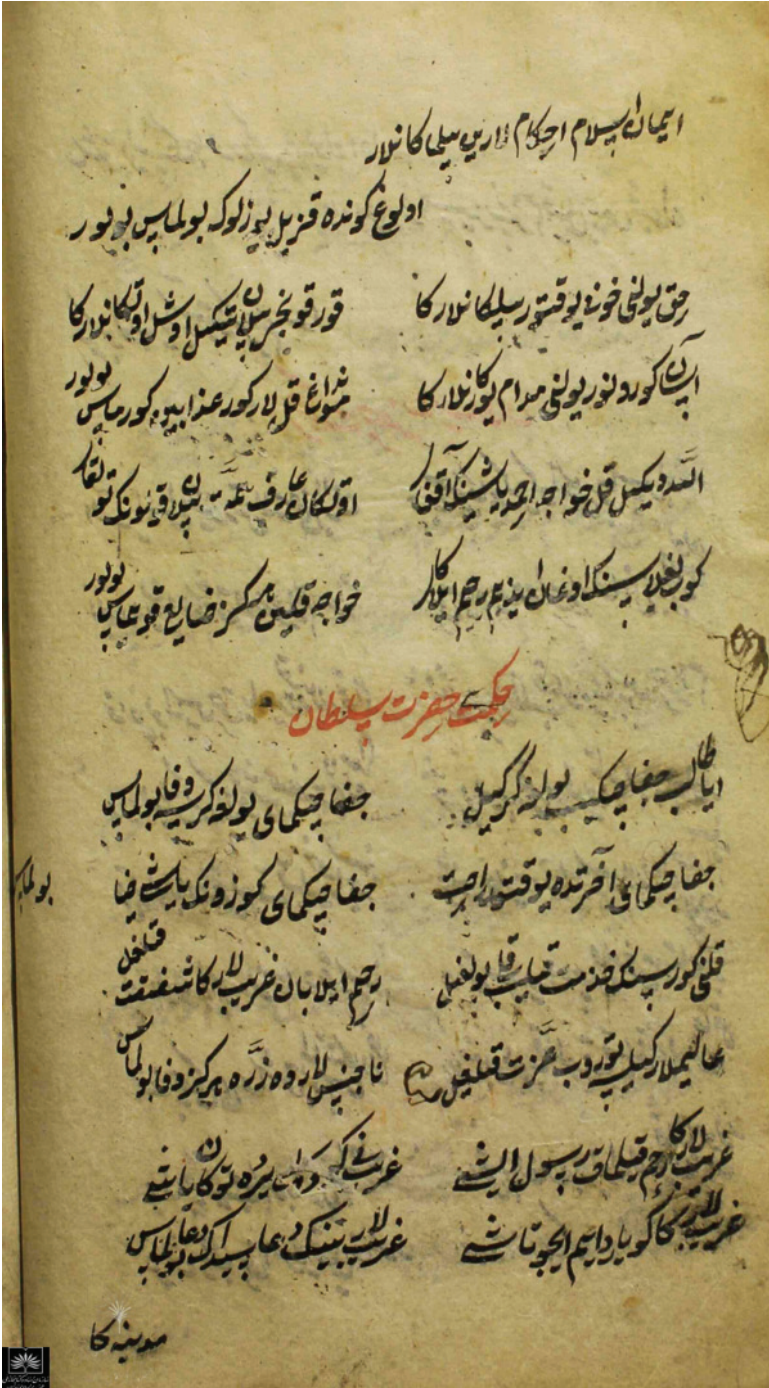 ایمان اسلام احکام لارین بیلماکانلار
اولوغ کونده قزیل یوزلوک بولماس بولور
حق یولنی خوف یوقتور سیلکانلارکا قورقونجسیز تیکسل اوشل اوتکانلارکا
آسان کورونور یولنی مدام یورکانلارکا مونداغ قل لار کور عذابین کورماس بولور
الله دیکیل قل خواجه احمد یاشینک آقغای اوتکان عارف همت بیلان قولونک توتغای
کوب ییغلاسینک اوغان ایزیم رحم ایلاکای خواجه قلین هرکز ضایع قویماس بولور
حکمت حضرت سلطان
ایا طالب جفا چیکیب یولغه کرکیل جفا چیکمای یولغه کرسه وفا بولماس
جفا چیکمای آخرتده یوقتور راحت جفا چیکمای کوزونک یاشی ضیا بولماس
قلنی کورسنک خدمت قیلیب قل بولغیل رحم ایلابان غریب لارکا شفقت قیلغیل
عالیملار کیلسه توروب عزت قیلغیل ناجنس لارده ذره هرکز وفا بولماس
غریب لارکا رحم قیلماق رسول ایشی غریبنی کورسه یره توکان یاشی
غریب لارکا کویار دایم ایچو تاشی غریب لارنینک دعاسیدک دعا بولماس
مدینه کا